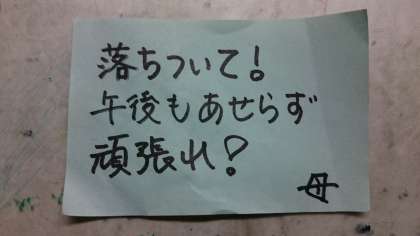 落ちついて!
午後もあせらず
頑張れ!
母